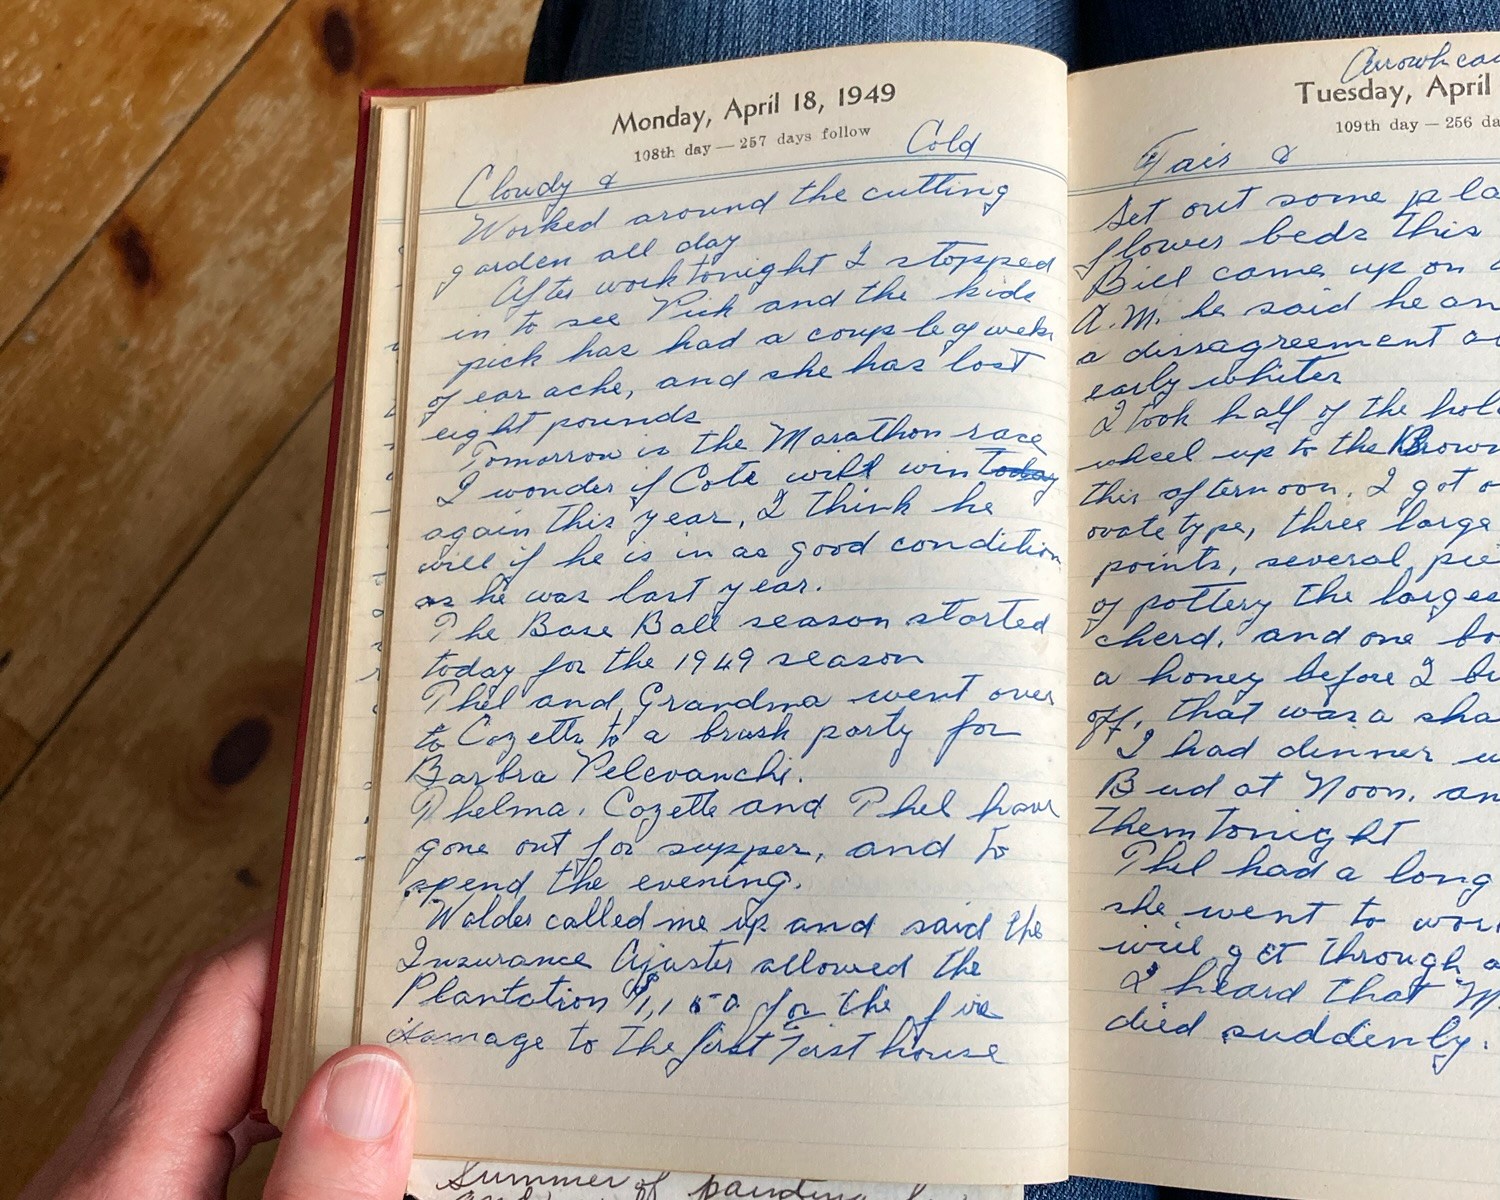 Monday, April 18, 1949
108th day — 257 days follow
Cloudy & Cold
Worked around the cutting
garden all day
After work tonight I stopped
in to see Pick and the kids
pick has had a couple of weks
of ear ache, and she has lost
eight pounds
Tomorrow is the Marathon race
I wonder if Cote will win today
again this year, I think he
will if he is in as good condition
as he was last year.
The Base Ball season started
today for the 1949 season
Thel and Grandma went over
to Cozette to a brush party for
Barbra Pelevanchi.
Thelma, Cozette and Thel have
gone out for supper, and to
spend the evening.
Walder called me up and said the
Insurance Ajuster allowed the
Plantation for the fire
damage to the first house
Summer of
Arrowhea
Tuesday, April
109th day — 256 da
Fair &
Set out some pla
flower beds this
Bill came up on
A.M. he said he an
a dissagreement
early whiter
I took half of the hol
wheel up to the Brown
this afternoon. I got
ovate type, three large
points, several pie
of pottery the larges
cherd, and one bo
a honey before I b
off, that was a sha
I had dinner
Bud at Noon, an
them tonight
Thel had a long
she went to wor
will get through a
I heard that M
died suddenly.